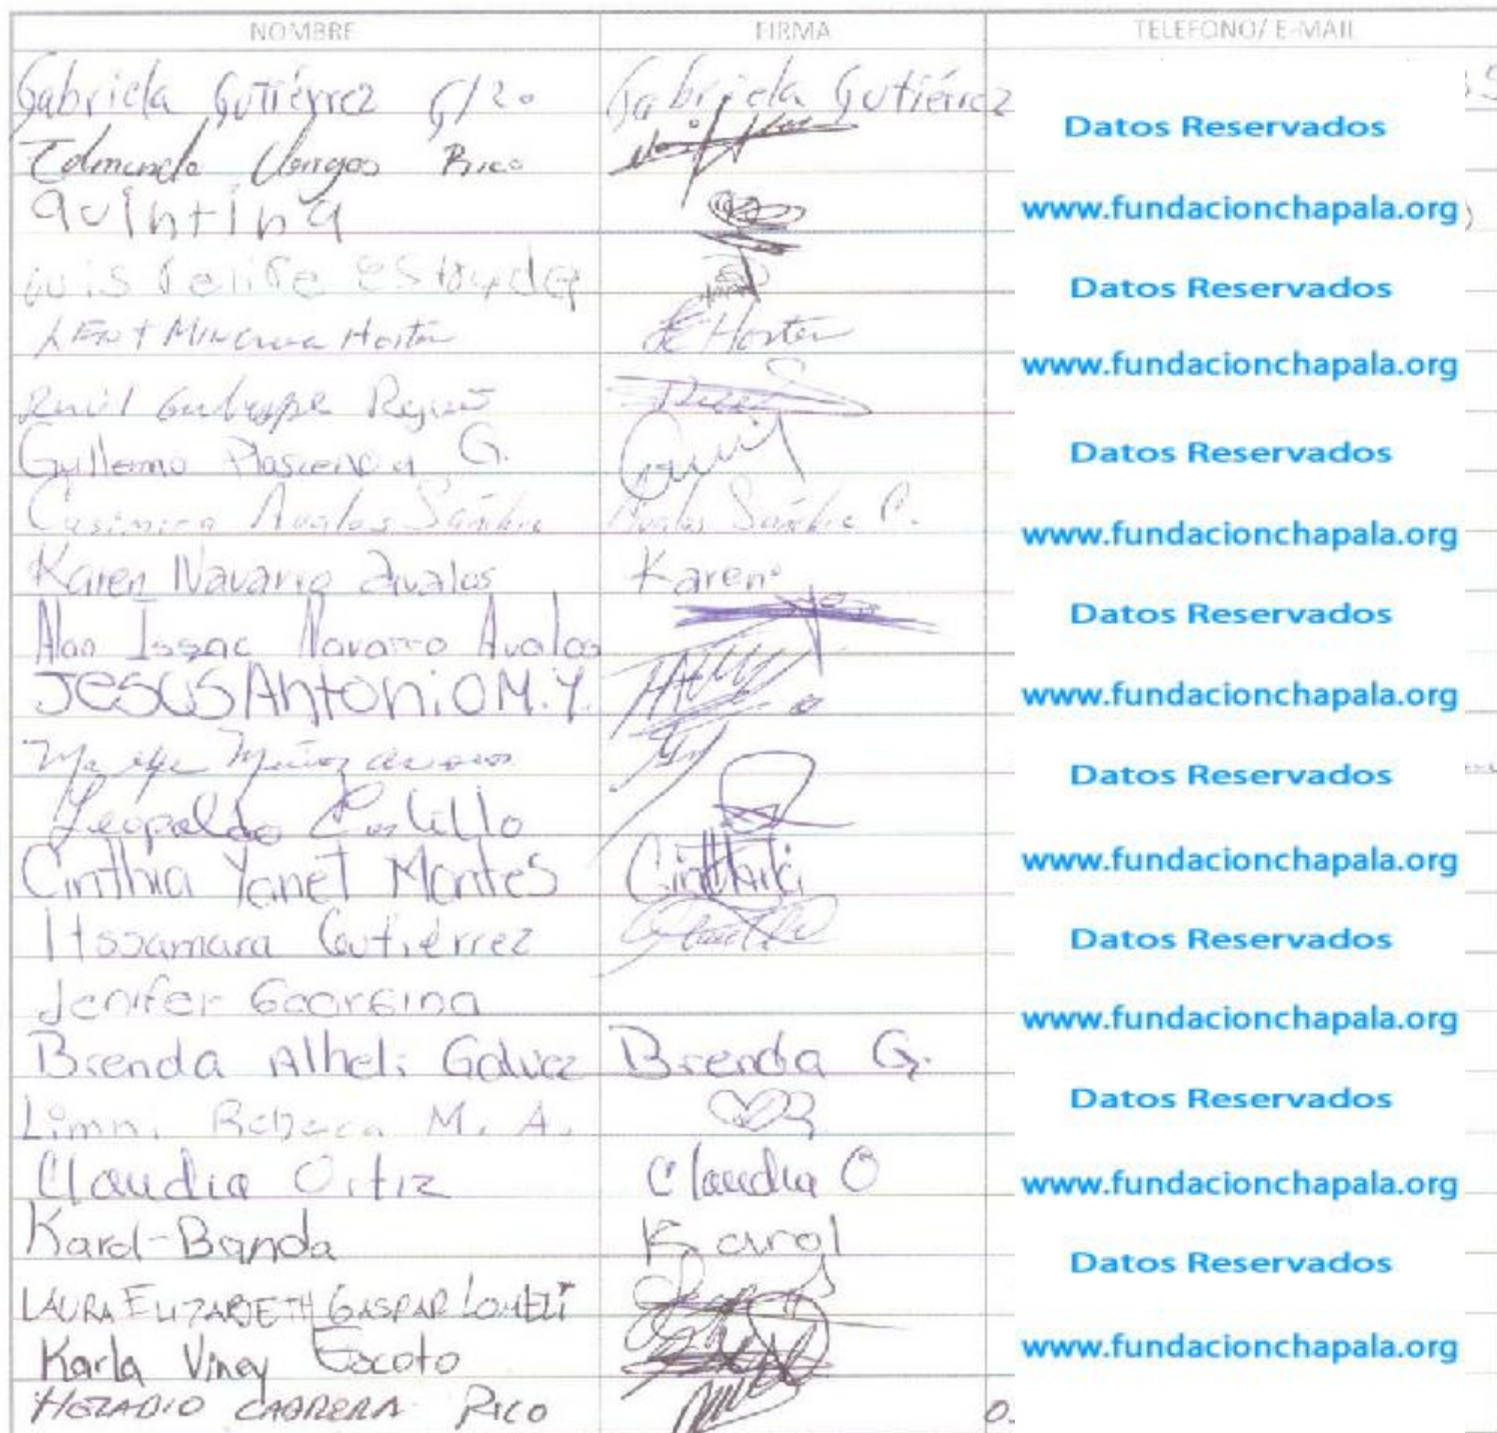 NOMBRE FIRMA TELEFONO/ E-MAIL
Gabriela Gutiérrez G/zo Gabriela Gutiérrez
Datos Reservados
Edmundo Vargas Rico
Quintina www.fundacionchapala.org
Luis Felipe Datos Reservados
Minerva Horton Horton
www.fundacionchapala.org
Guillermo Plascencia G. Datos Reservados
Casimira Avalos Sánchez Avalos Sánchez C.
www.fundacionchapala.org
Karen Navarro Avalos Karen
Datos Reservados
Alan Issac Navarro Avalos
JESUS AntoniO M. Y. www.fundacionchapala.org
Muñoz
Datos Reservados
Leopoldo Castillo
Cinthia Yanet Montes Cinthia www.fundacionchapala.org
Itssamara Gutiérrez Datos Reservados
Jenifer Georgina
www.fundacionchapala.org
Brenda Alheli Galvez Brenda G.
Limni Rebeca M. A. Datos Reservados
Claudia Ortiz Claudia O www.fundacionchapala.org
Karol-Banda Karol
Datos Reservados
LAURA ELIZABETH GASPAR
Karla Viney Escoto www.fundacionchapala.org
HORACIO CABRERA RICO